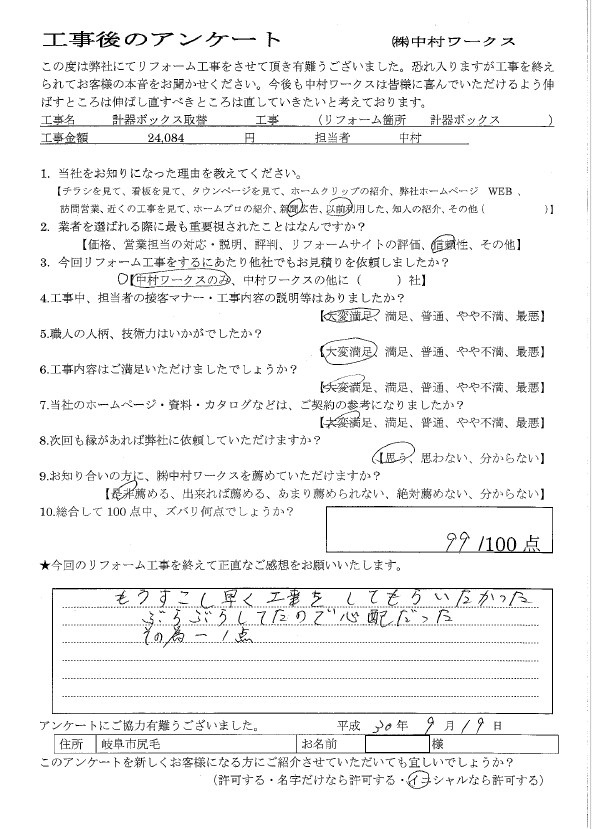 工事後のアンケート　㈱中村ワークス
この度は弊社にてリフォーム工事をさせて頂き有難うございました。恐れ入りますが工事を終え
られてお客様の本音をお聞かせください。今後も中村ワークスは皆様に喜んでいただけるよう伸
ばすところは伸ばし直すべきところは直していきたいと考えております。
工事名　計器ボックス取替　工事　（リフォーム箇所　計器ボックス　）
工事金額　24,084　円　担当者　中村
1. 当社をお知りになった理由を教えてください。
【チラシを見て、看板を見て、タウンページを見て、ホームクリップの紹介、弊社ホームページ　WEB 、
訪問営業、近くの工事を見て、ホームプロの紹介、新聞広告、以前利用した、知人の紹介、その他（　）】
2. 業者を選ばれる際に最も重要視されたことはなんですか？
【価格、営業担当の対応・説明、評判、リフォームサイトの評価、信頼性、その他】
3. 今回リフォーム工事をするにあたり他社でもお見積りを依頼しましたか？
【中村ワークスのみ、中村ワークスの他に（　）社】
4.工事中、担当者の接客マナー・工事内容の説明等はありましたか？
【大変満足、満足、普通、やや不満、最悪】
5.職人の人柄、技術力はいかがでしたか？
【大変満足、満足、普通、やや不満、最悪】
6.工事内容はご満足いただけましたでしょうか？
【大変満足、満足、普通、やや不満、最悪】
7.当社のホームページ・資料・カタログなどは、ご契約の参考になりましたか？
【大変満足、満足、普通、やや不満、最悪】
8.次回も縁があれば弊社に依頼していただけますか？
【思う、思わない、分からない】
9.お知り合いの方に、㈱中村ワークスを薦めていただけますか？
【是非薦める、出来れば薦める、あまり薦められない、絶対薦めない、分からない】
10.総合して 100 点中、ズバリ何点でしょうか？
99 /100 点
★今回のリフォーム工事を終えて正直なご感想をお願いいたします。
もうすこし早く工事をしてもらいたかった
ぶらぶらしてたので心配だった
その為－1点
アンケートにご協力有難うございました。　平成 30 年 9 月 19 日
住所　岐阜市尻毛　お名前　様
このアンケートを新しくお客様になる方にご紹介させていただいても宜しいでしょうか？
（許可する・名字だけなら許可する・イニシャルなら許可する）